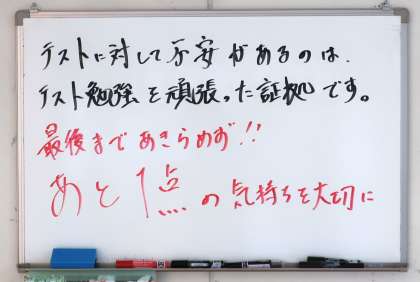 テストに対して不安があるのは、
テスト勉強を頑張った証拠です。
最後まであきらめず!!
あと1点の気持ちを大切に